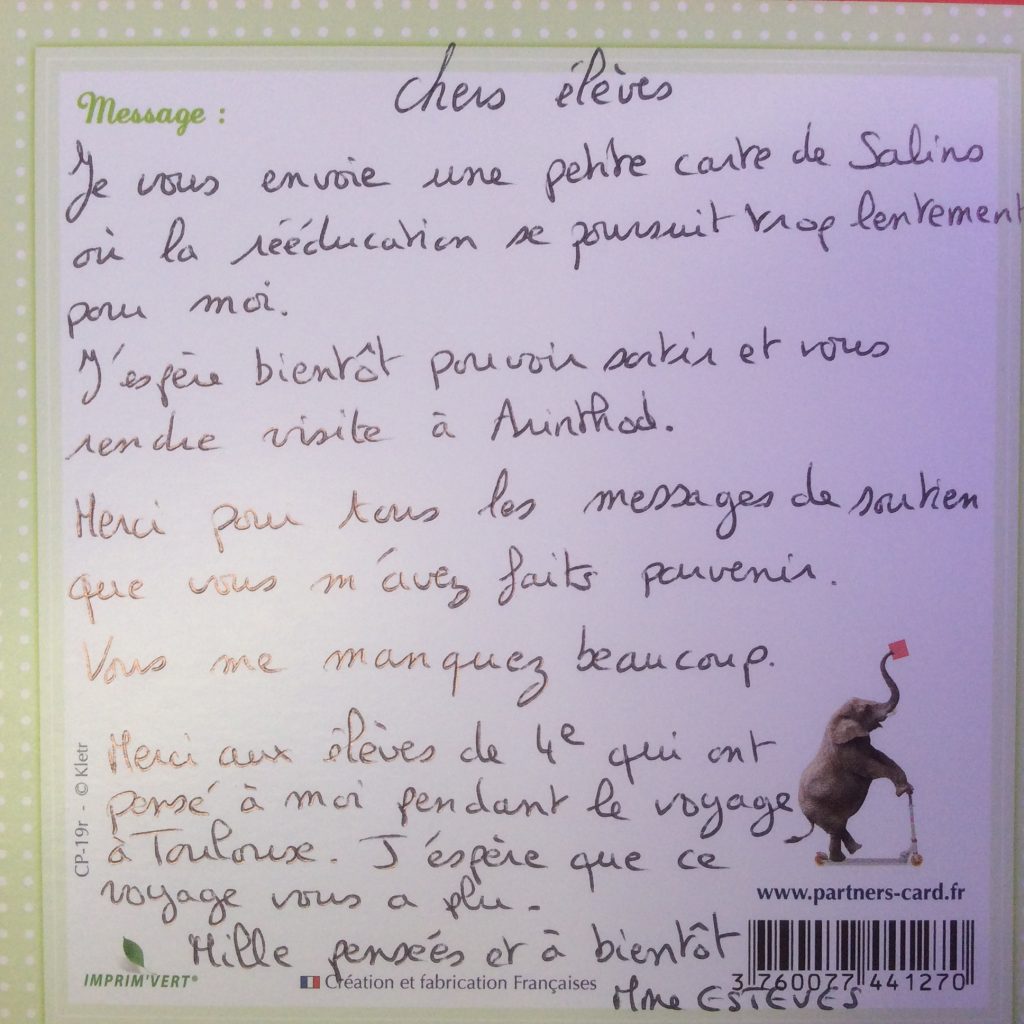 Message :
Chers élèves
Je vous envoie une petite carte de Salins
où la rééducation se poursuit trop lentement
pour moi.
J'espère bientôt pouvoir sortir et vous
rendre visite à Arinthod.
Merci pour tous les messages de soutien
que vous m'avez faits parvenir.
Vous me manquez beaucoup.
Merci aux élèves de 4e qui ont
pensé à moi pendant le voyage
à Toulouse. J'espère que ce
voyage vous a plu.
Mille pensées et à bientôt
Mme ESTEVES
CP-19r - © Kletr
www.partners-card.fr
IMPRIM'VERT®
Création et fabrication Françaises
3 760077 441270